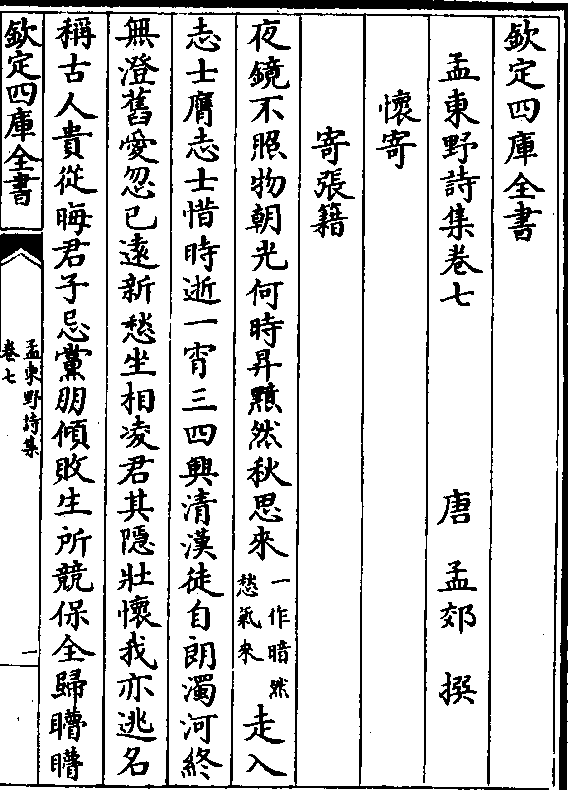 欽定四庫全書
孟東野詩集卷七　唐　孟郊　撰
懷寄
寄張籍
夜鏡不照物朝光何時昇黯然秋思來一作暗然愁氣來走入
志士膺志士惜時逝一宵三四興清漢徒自朗濁河終
無澄舊愛忽已遠新愁坐相凌君其隱壯懷我亦逃名
稱古人貴從晦君子忌黨朋傾敗生所競保全歸瞢瞢
欽定四庫全書
孟東野詩集
卷七
一